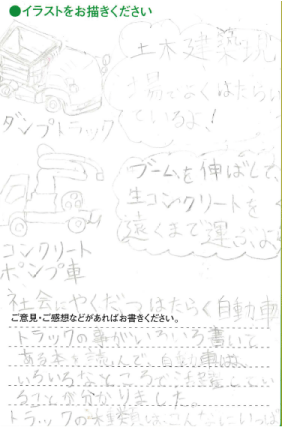 ●イラストをお描きください
土木建築現
場でよくはたらい
ているよ!
ダンプトラック
ブームを伸ばして、
生コンクリートを
遠くまで運ぶよ
コンクリート
ポンプ車
社会にやくだつはたらく自動車
ご意見・ご感想などがあればお書きください。
トラックの事がいろいろ書いて
ある本を読んで、自動車は、
いろいろなところで、活躍してい
ることが分かりました。
トラックの種類は、こんなにいっぱ